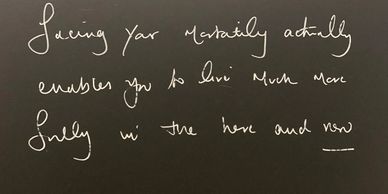 Facing your mortality actually
enables you to live much more
fully in the here and now